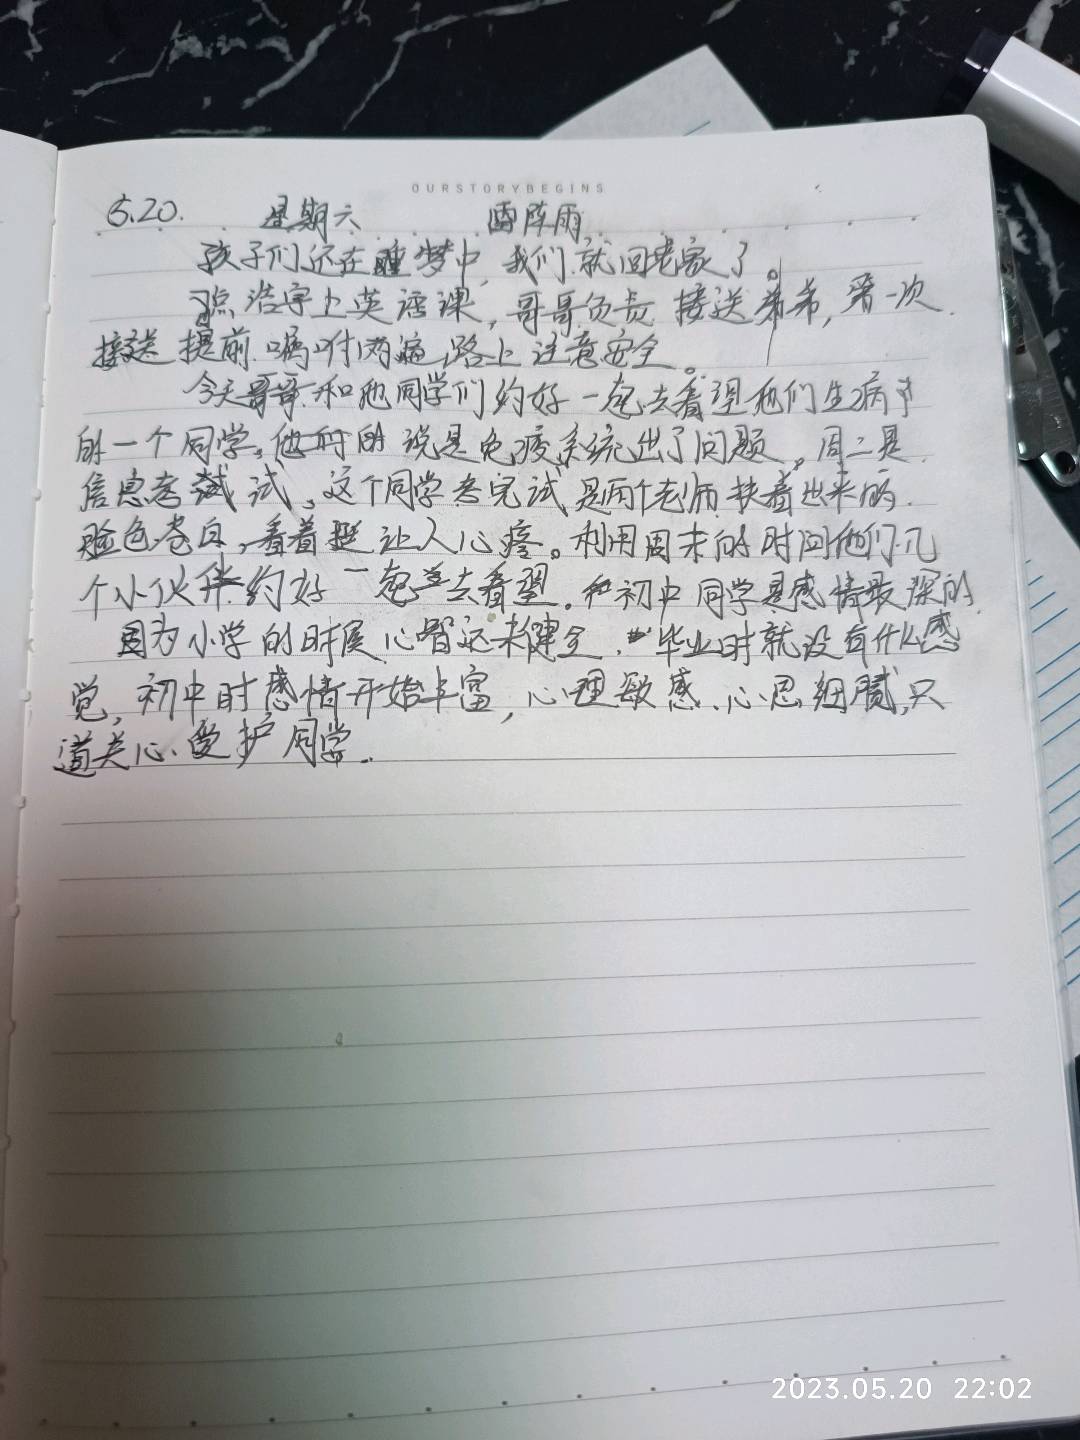 OURSTORYBEGINS
5.20. 星期六 雷阵雨
孩子们还在睡梦中, 我们就回老家了。
点浩宇上英语课, 哥哥负责接送弟弟, 第一次
接送 提前嘱咐两遍,路上注意安全。
今天哥哥和他同学们约好一起去看望他们生病
的一个同学。他的说是免疫系统出了问题。周二是
信息考试试、这个同学考完试是两个老师扶着出来的.
脸色苍白,看着挺让人心疼。利用周末的时间他们几
个小伙伴约好一起去看望。和初中同学是感情最深的
因为小学的时候心智还未健全. 毕业时就没有什么感
觉, 初中时感情开始丰富, 心理敏感、心思细腻,只
道关心、爱护同学.
2023.05.20 22:02